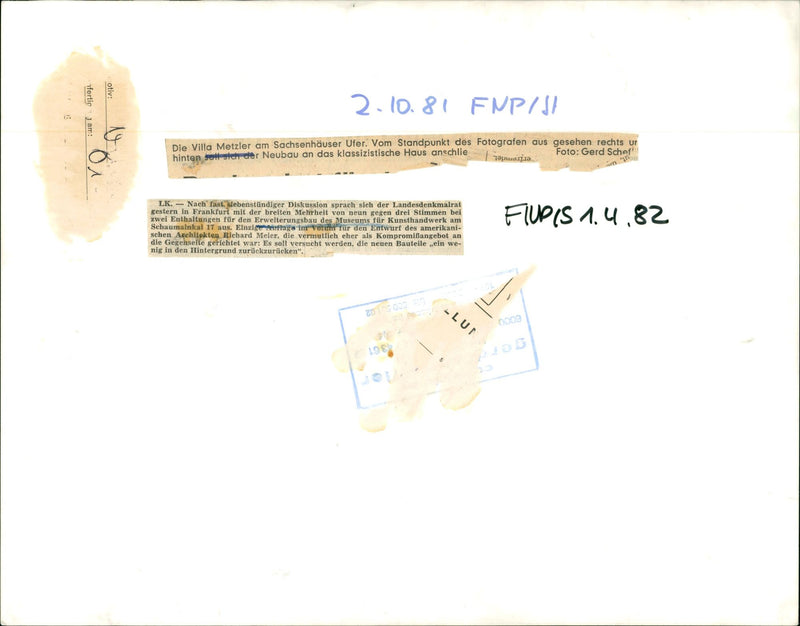 2.10.81 FNP/SI
Die Villa Metzler am Sachsenhäuser Ufer. Vom Standpunkt des Fotografen aus gesehen rechts
hinten soll sich der Neubau an das klassizistische Haus anschlie
Foto: Gerd Schef
I.K. — Nach fast siebenstündiger Diskussion sprach sich der Landesdenkmalrat
gestern in Frankfurt mit der breiten Mehrheit von neun gegen drei Stimmen bei
zwei Enthaltungen für den Erweiterungsbau des Museums für Kunsthandwerk am
Schaumainkai 17 aus. Einzige Auflage im Votum für den Entwurf des amerikani-
schen Architekten Richard Meier, die vermutlich eher als Kompromißangebot an
die Gegenseite gerichtet war: Es soll versucht werden, die neuen Bauteile „ein we-
nig in den Hintergrund zurückzurücken".
FNP/S 1.4.82
otiv:
am:
01
LLUN
6000
gerd